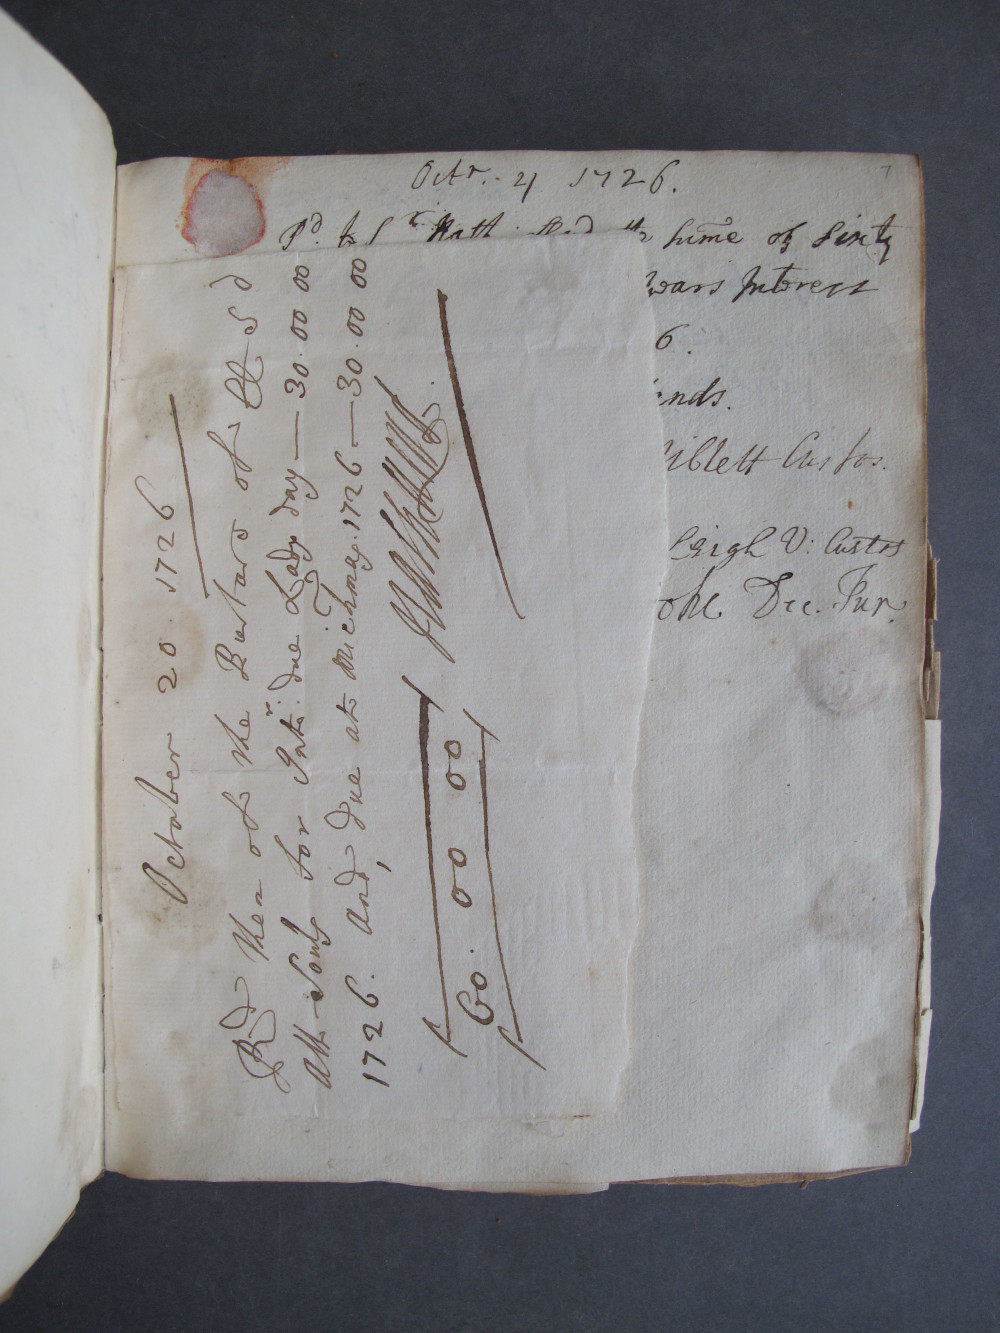 7
Octr. 4 1726.
Pd. to Sr. Nath the sume of Sixty
years Interest
6.
ends.
Niblett Custos.
Leigh V: Custos
Dec. Fur.
October 20 1726
Rd then of the Bursars of ll S d
All Souls for Intr. due Lady day — 30. 00 00
1726. And, due at Michmas. 1726 — 30. 00 00
60. 00 00